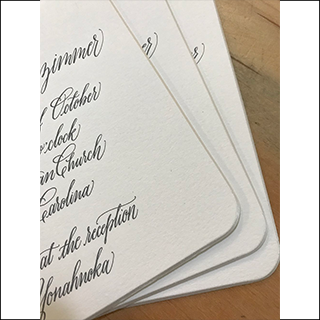 zimmer
October
o'clock
an Church
Carolina
at the reception
Yonahnoka